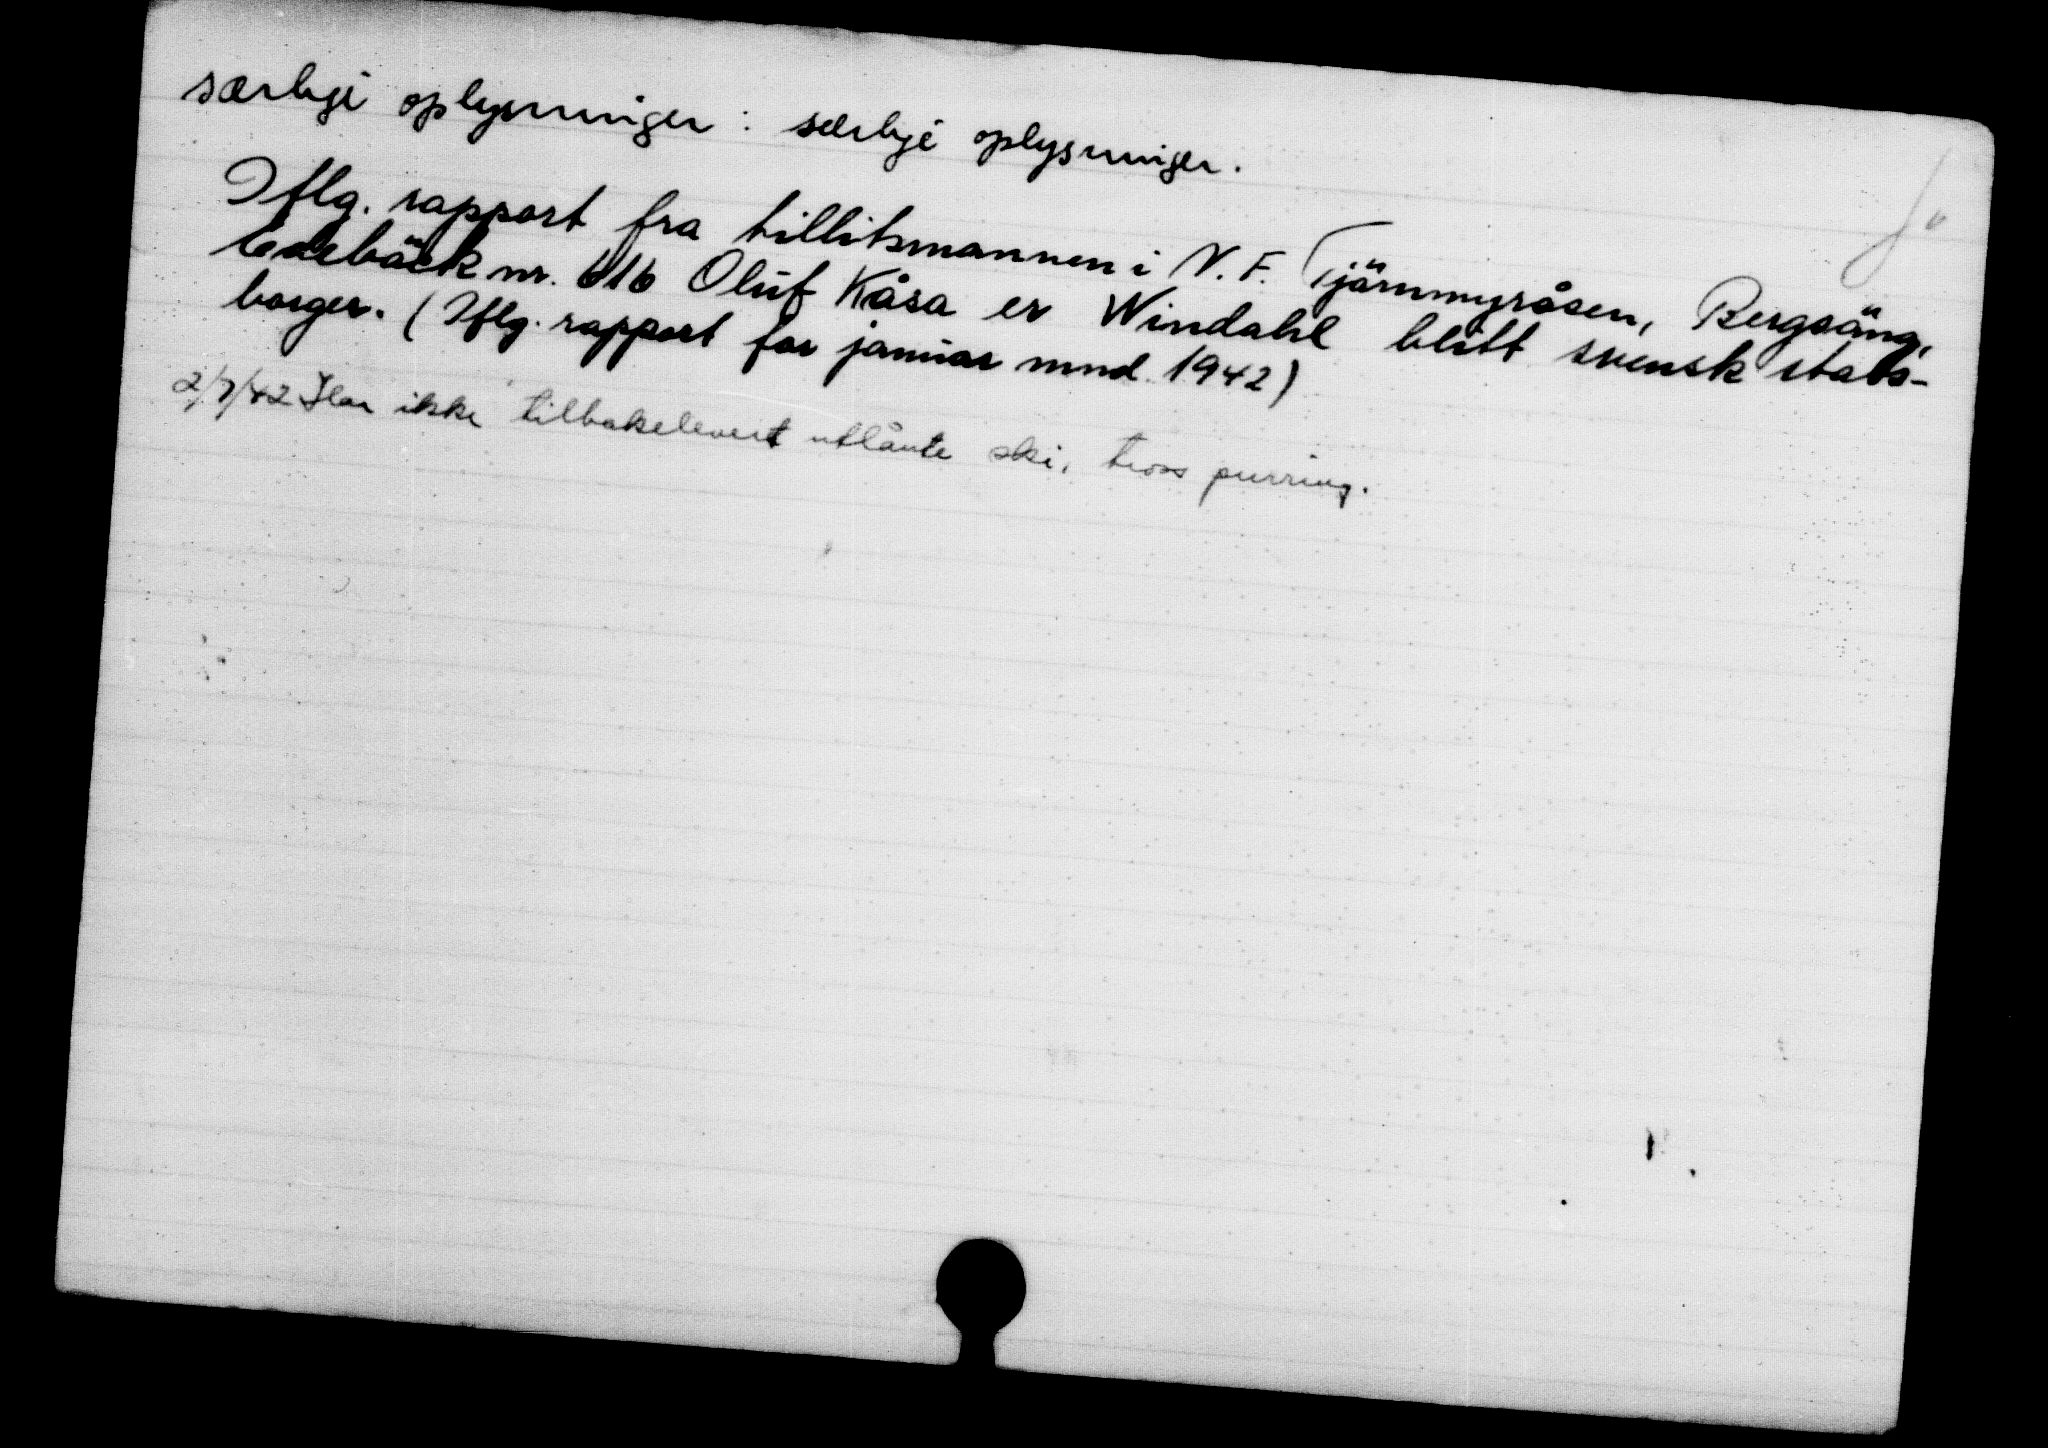 særlige oplysninger : særlige oplysninger.
Iflg. rapport fra tillitsmannen i V. F. Tjärnmyråsen, Bergsäng,
Edebäck nr. 616 Oluf Kåsa er Windahl blitt svensk stats-
borger. (Iflg. rapport for januar mnd. 1942)
2/7/42 Har ikke tilbakelevert utlånte ski, tross purring.